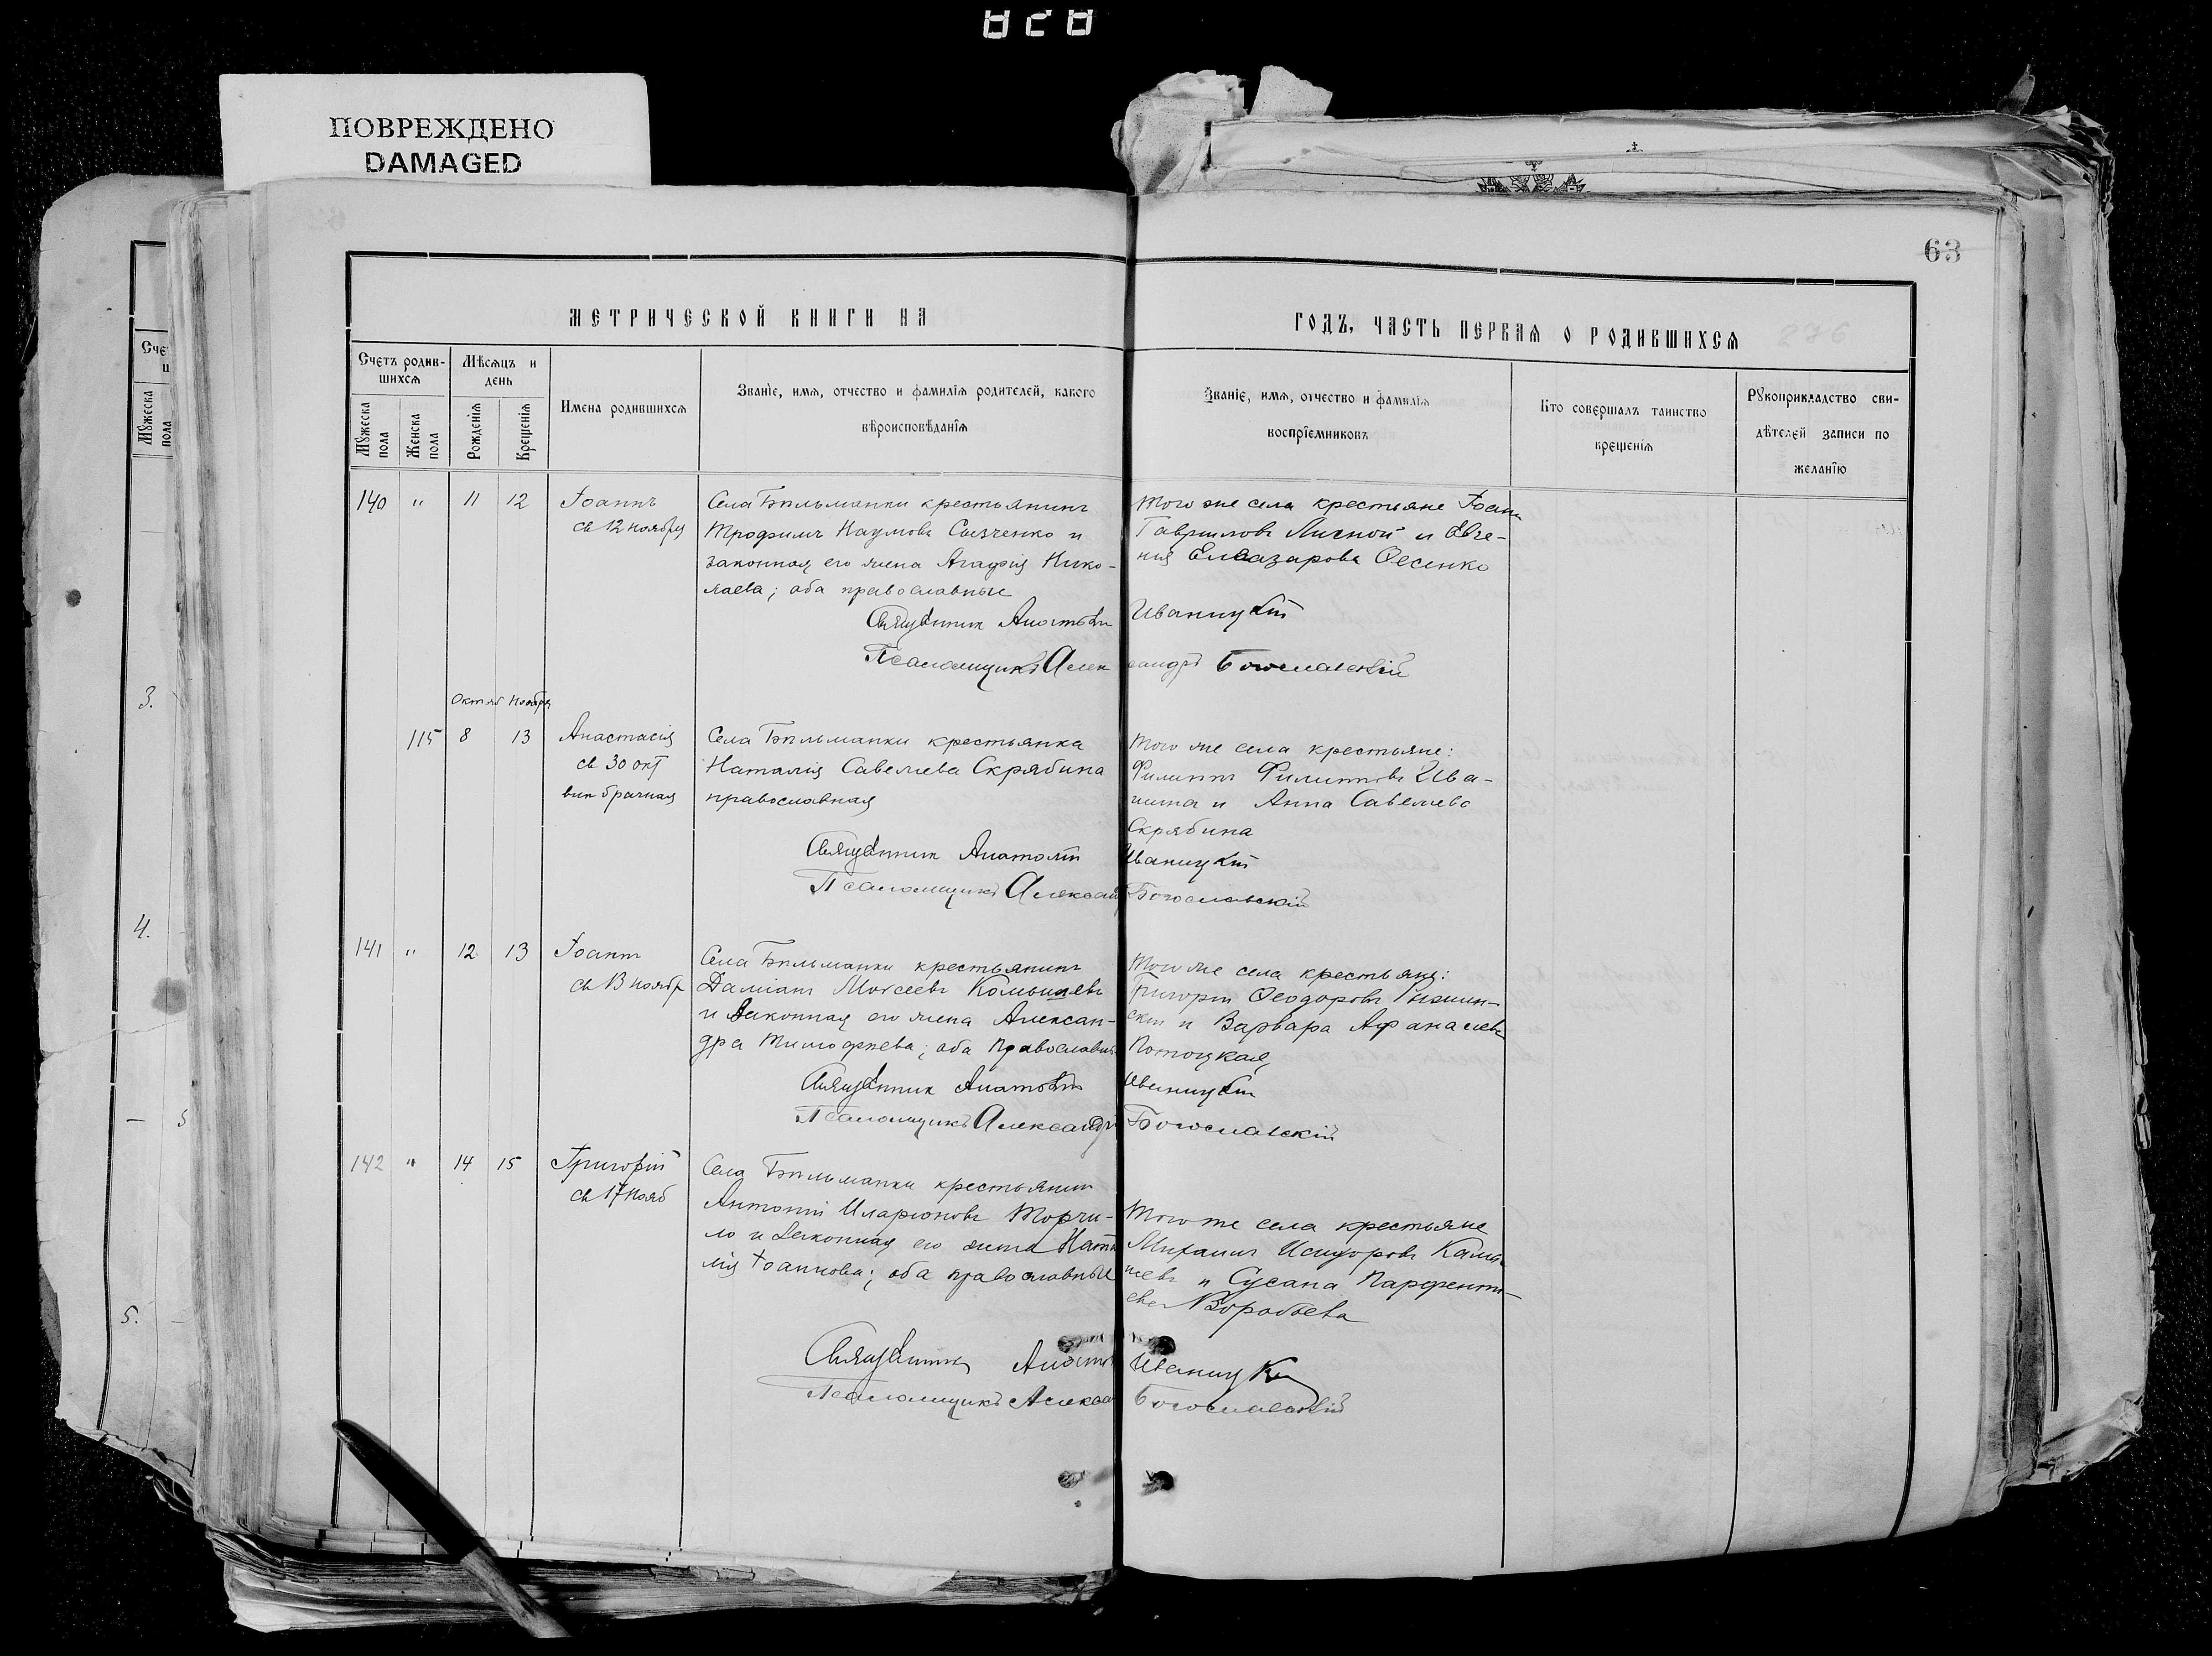 ПОВРЕЖДЕНО
DAMAGED
63
МЕТРИЧЕСКОЙ КНИГИ НА
ГОДЪ, ЧАСТЬ ПЕРВАЯ О РОДИВШИХСЯ
276
Счетъ родив-
шихся
Мѣсяцъ и
день
Мужеска
пола
Женска
пола
Рожденія
Крещенія
Имена родившихся
Званіе, имя, отчество и фамилія родителей, какого
вѣроисповѣданія
Званіе, имя, отчество и фамилія
воспріемниковъ
Кто совершалъ таинство
крещенія
Рукоприкладство сви-
дѣтелей записи по
желанію
Мужеска
пола
3.
4.
5.
140 " 11 12
Іоаннъ
св 12 ноября
Села Бѣльманки крестьянинъ
Трофимъ Наумовъ и
законная его жена Агафія Нико-
лаева; оба православные
Того же села крестьяне Іоан
Гавриловъ и Евге-
нія Елеазарова Фесенко
Священник Анатолій Иваницкій
Псаломщикъ Александръ Богославскій
Октяб Ноября
115 8 13
Анастасія
св 30 окт
внѣбрачная
Села Бѣльманки крестьянка
Наталія Савелиева Скрябина
православная
Того же села крестьяне:
Филиппъ Филипповъ Ива-
и Анна Савелиева
Скрябина
Священник Анатолій Иваницкій
Псаломщикъ Александ Богославскій
141 " 12 13
Іоаннъ
св 13 ноябр
Села Бѣльманки крестьянинъ
Даміанъ Моисеевъ
и законная его жена Алексан-
дра Тимофѣева; оба православн
Того же села крестьяне:
Григорій Феодоровъ
и Варвара Афанасіева
Потоцкая
Священник Анатолій Иваницкій
Псаломщикъ Александръ Богославскій
142 " 14 15
Григорій
св 17 Нояб
Села Бѣльманки крестьянин
Антоній Иларіоновъ Торчи-
ло и законная его жена Ната
лія Іоаннова; оба православные
Того же села крестьяне
Михаилъ Исидоровъ Камы-
шевъ и Сусана Парфенті-
ева Воробьева
Священник Анатол Иваницкій
Псаломщикъ Алекса Богославскій